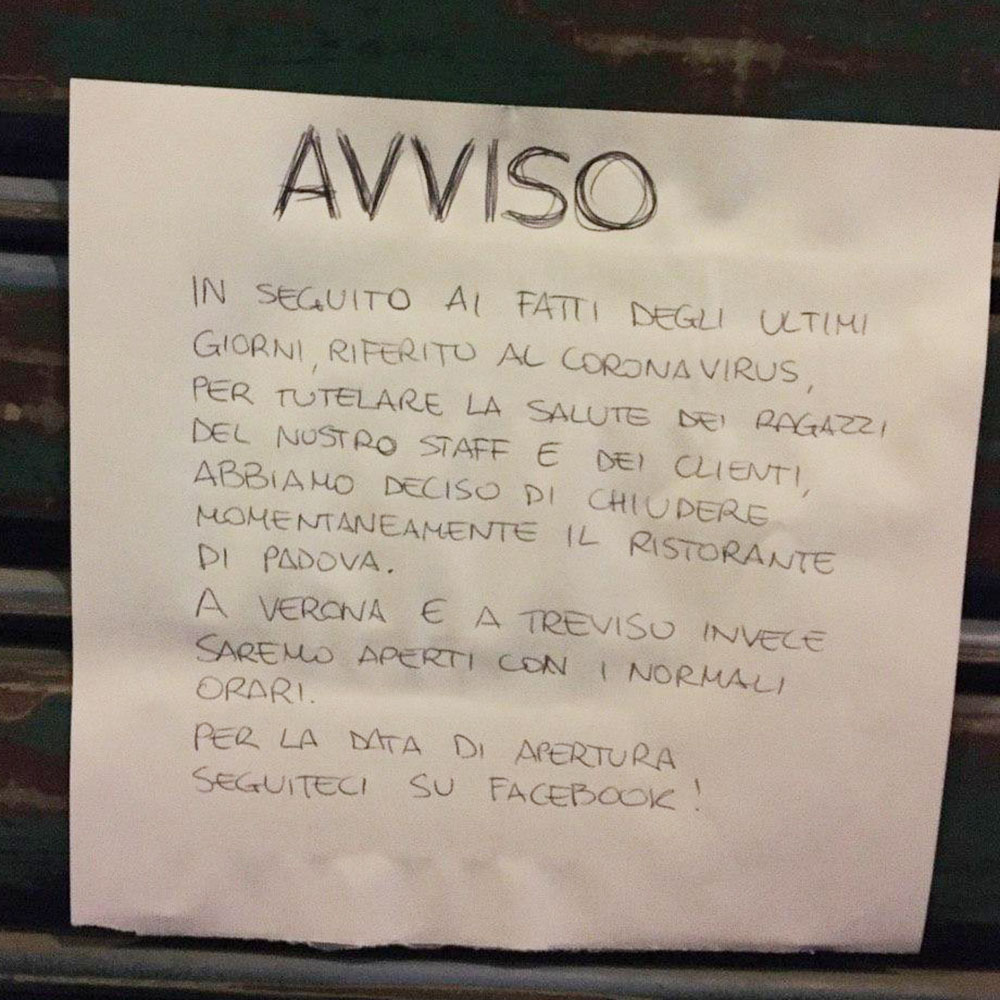 AVVISO
IN SEGUITO AI FATTI DEGLI ULTIMI
GIORNI, RIFERITO AL CORONAVIRUS,
PER TUTELARE LA SALUTE DEI RAGAZZI
DEL NOSTRO STAFF E DEI CLIENTI,
ABBIAMO DECISO DI CHIUDERE
MOMENTANEAMENTE IL RISTORANTE
DI PADOVA.
A VERONA E A TREVISO INVECE
SAREMO APERTI CON I NORMALI
ORARI.
PER LA DATA DI APERTURA
SEGUITECI SU FACEBOOK!